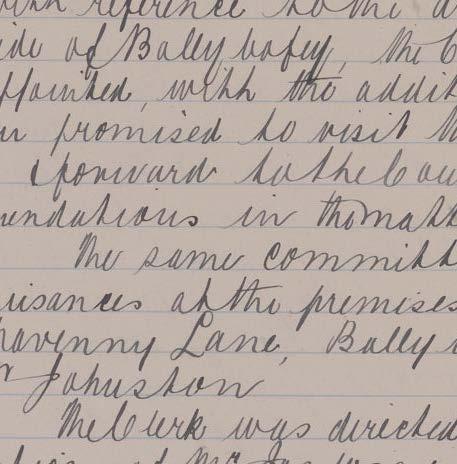 with reference to the d
ide of Ballybofey, the C
ppointed, with the addit
ur promised to visit th
& forward to the Cou
mendations in the matt
The same committ
uisances at the premises
ravenny Lane, Bally
r Johnston
The Clerk was directed